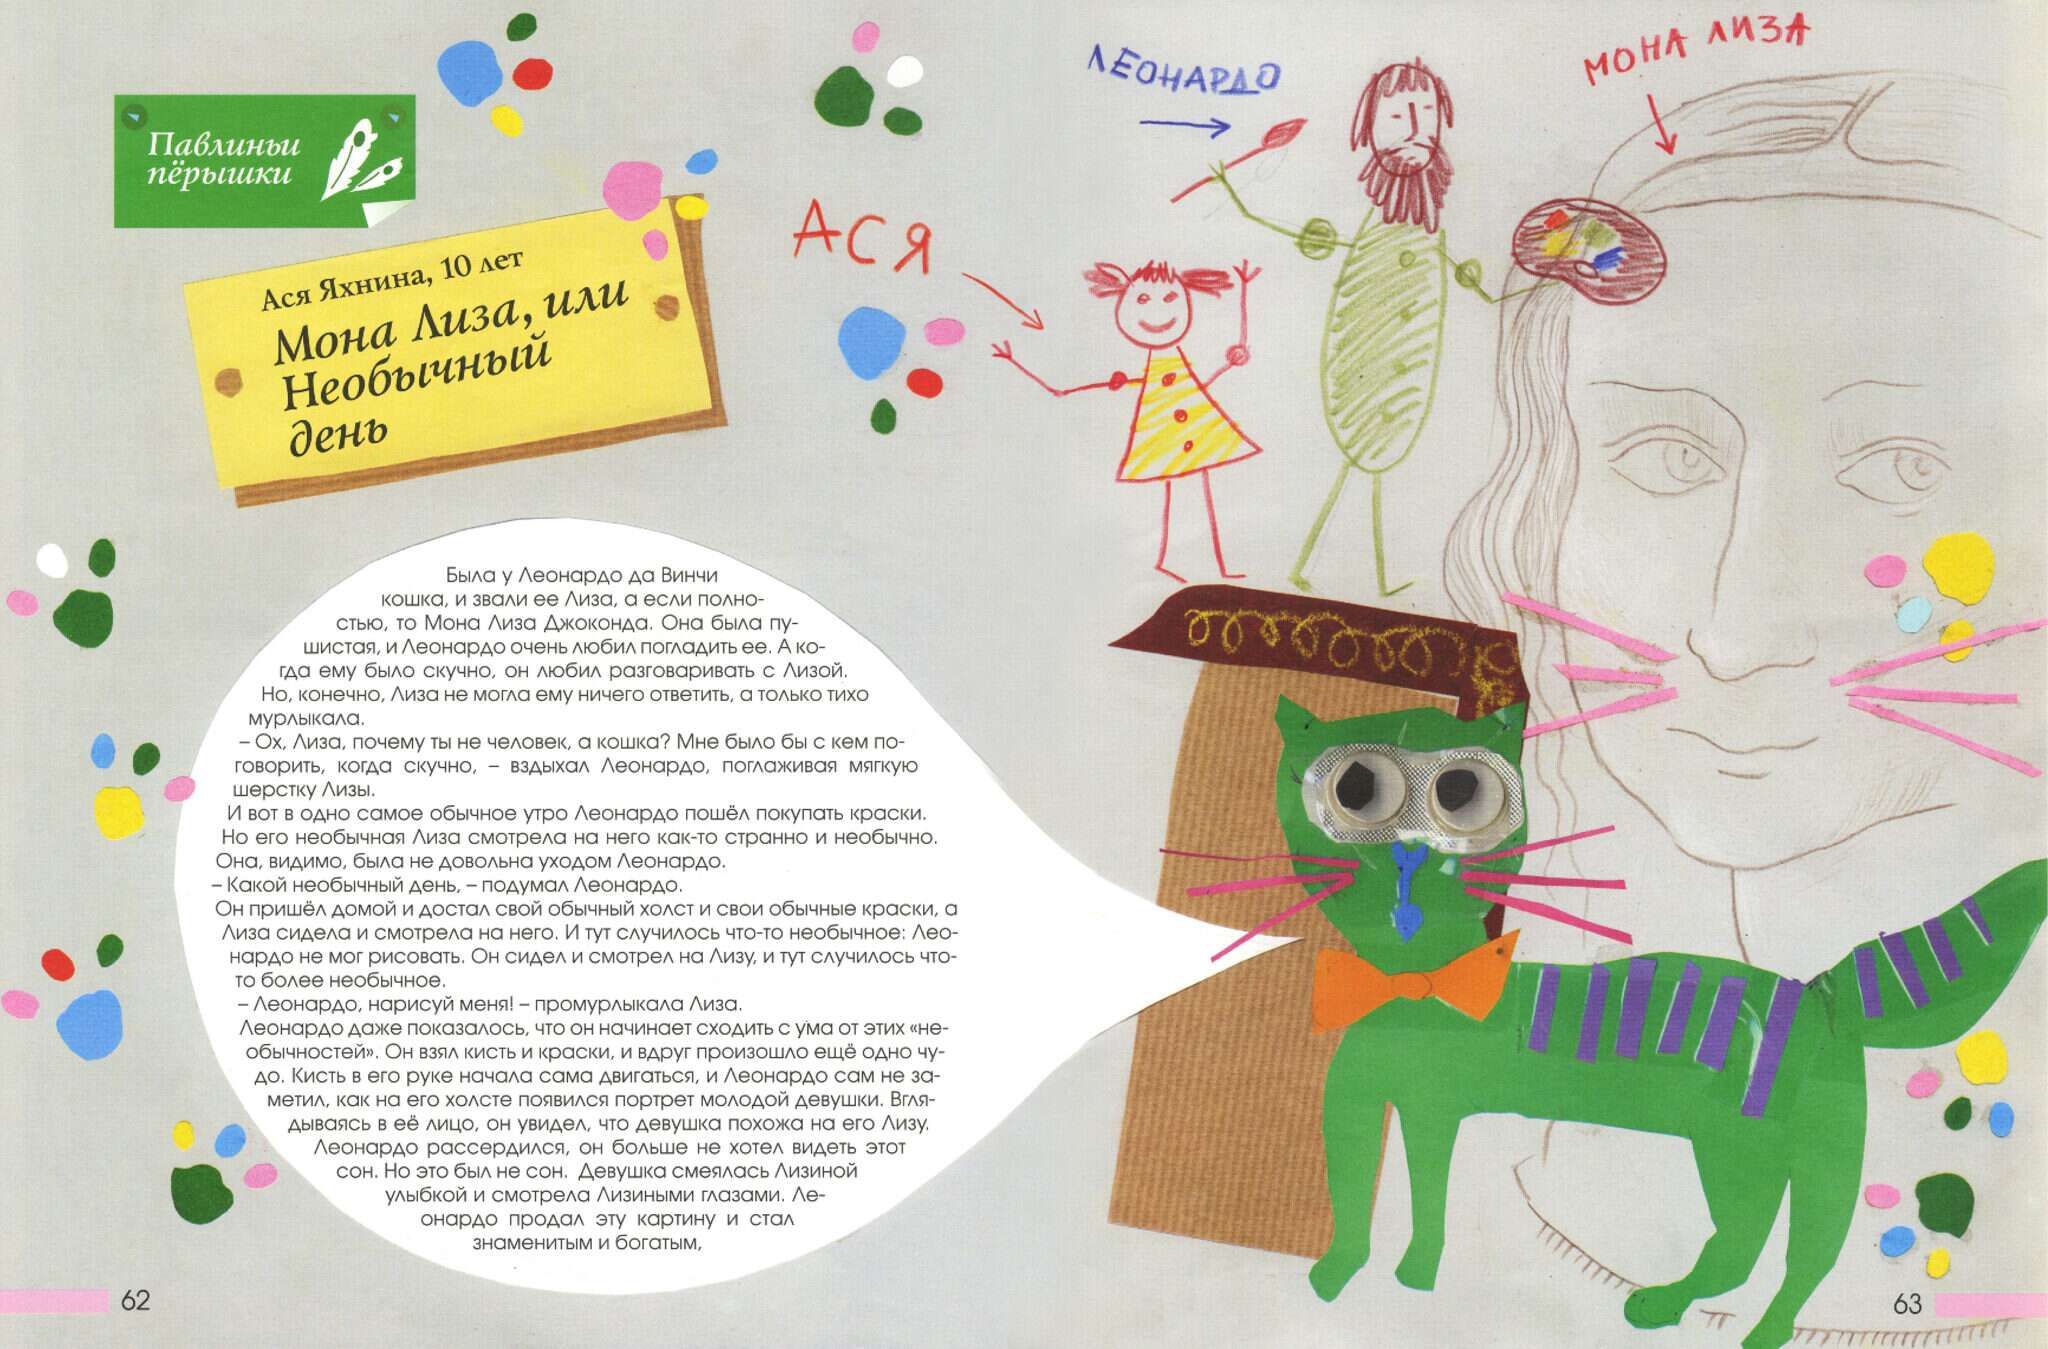 Павлиньи
пёрышки
Ася Яхнина, 10 лет
Мона Лиза, или
Необычный
день
Была у Леонардо да Винчи
кошка, и звали ее Лиза, а если полно-
стью, то Мона Лиза Джоконда. Она была пу-
шистая, и Леонардо очень любил погладить ее. А ко-
гда ему было скучно, он любил разговаривать с Лизой.
Но, конечно, Лиза не могла ему ничего ответить, а только тихо
мурлыкала.
– Ох, Лиза, почему ты не человек, а кошка? Мне было бы с кем по-
говорить, когда скучно, – вздыхал Леонардо, поглаживая мягкую
шерстку Лизы.
И вот в одно самое обычное утро Леонардо пошёл покупать краски.
Но его необычная Лиза смотрела на него как-то странно и необычно.
Она, видимо, была не довольна уходом Леонардо.
– Какой необычный день, – подумал Леонардо.
Он пришёл домой и достал свой обычный холст и свои обычные краски, а
Лиза сидела и смотрела на него. И тут случилось что-то необычное: Лео-
нардо не мог рисовать. Он сидел и смотрел на Лизу, и тут случилось что-
то более необычное.
– Леонардо, нарисуй меня! – промурлыкала Лиза.
Леонардо даже показалось, что он начинает сходить с ума от этих «не-
обычностей». Он взял кисть и краски, и вдруг произошло ещё одно чу-
до. Кисть в его руке начала сама двигаться, и Леонардо сам не за-
метил, как на его холсте появился портрет молодой девушки. Вгля-
дываясь в её лицо, он увидел, что девушка похожа на его Лизу.
Леонардо рассердился, он больше не хотел видеть этот
сон. Но это был не сон. Девушка смеялась Лизиной
улыбкой и смотрела Лизиными глазами. Ле-
онардо продал эту картину и стал
знаменитым и богатым,
62
АСЯ
ЛЕОНАРДО
МОНА ЛИЗА
63